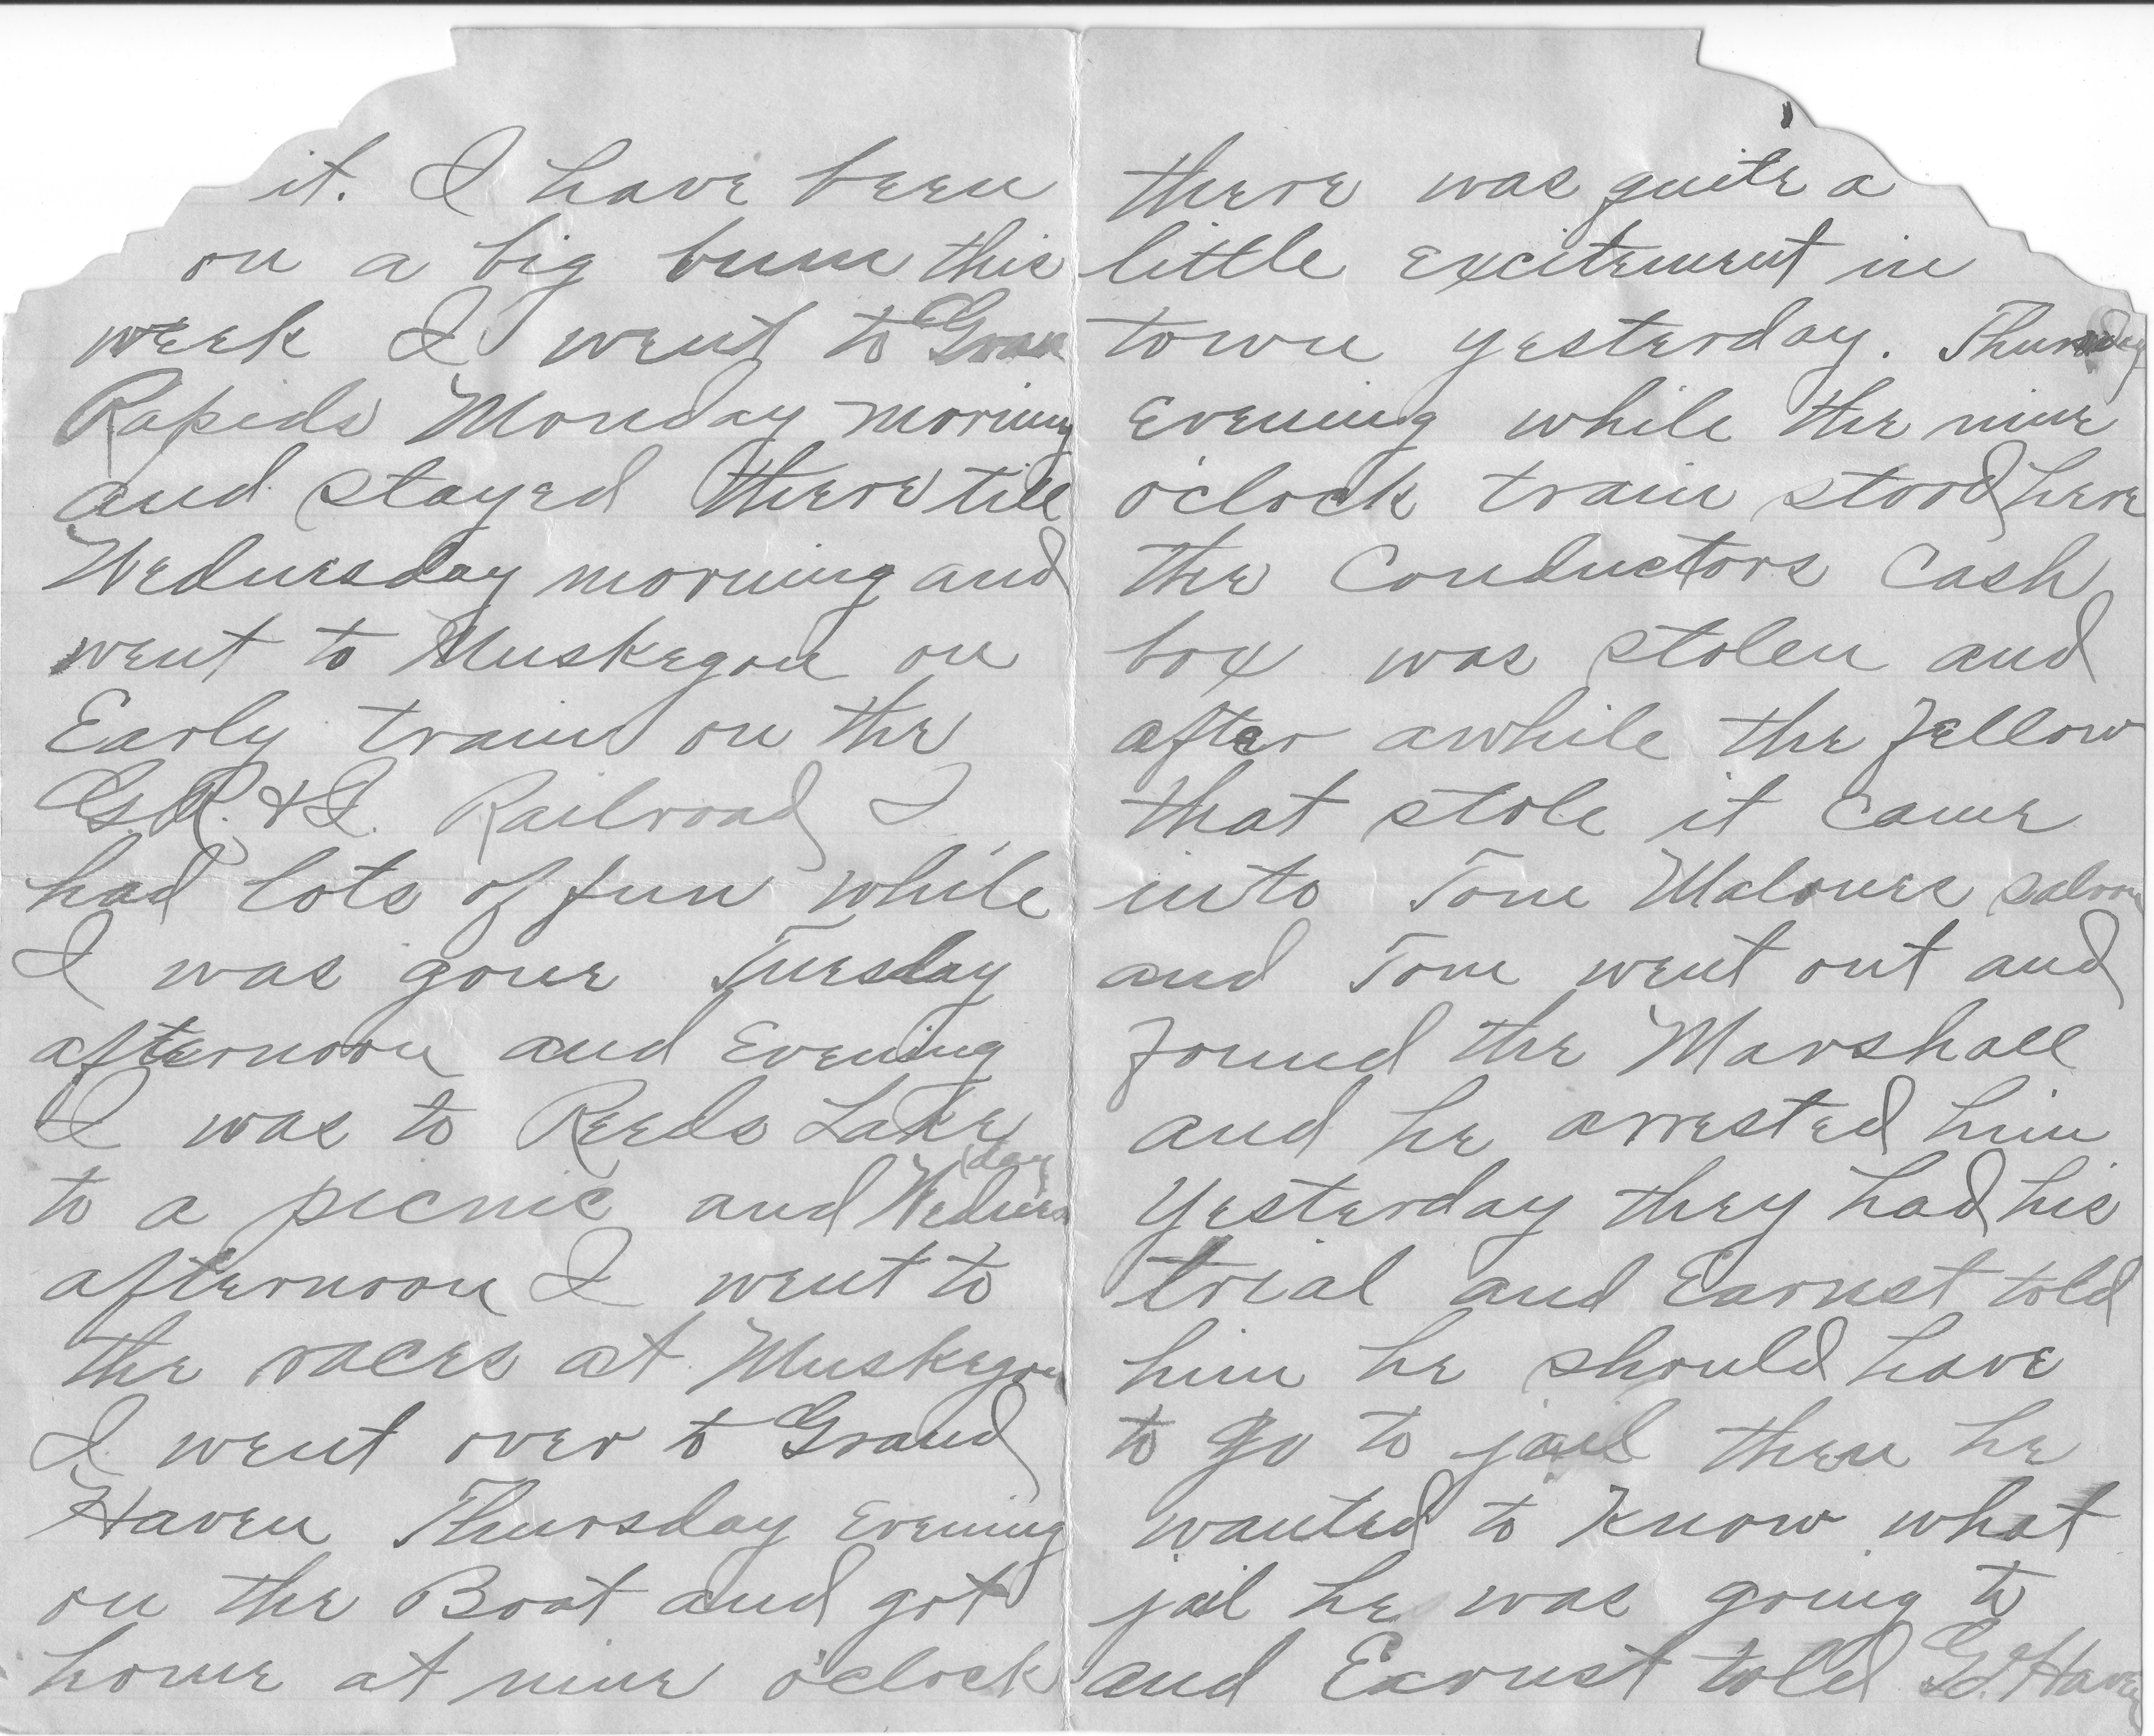 it. I have been
on a big bum this
week I went to Gran
Rapids Monday morning
and stayed there till
Wednesday morning and
went to Muskegon on
Early train on the
G.R. & I. Railroad I
had lots of fun while
I was gone Tuesday
afternoon and Evening
I was to Reeds Lake
to a picnic and Wednesday
afternoon I went to
the races at Muskegon
I went over to Grand
Haven Thursday Evening
on the Boat and got
home at nine o'clock
there was quite a
little excitement in
town yesterday. Thursday
Evening while the nine
o'clock train stood here
the Conductors Cash
box was stolen and
after awhile the fellow
that stole it came
into Tom Malones saloon
and Tom went out and
found the Marshall
and he arrested him
Yesterday they had his
trial and Earnst told
him he should have
to go to jail then he
wanted to know what
jail he was going to
and Earnst told Gd. Haven